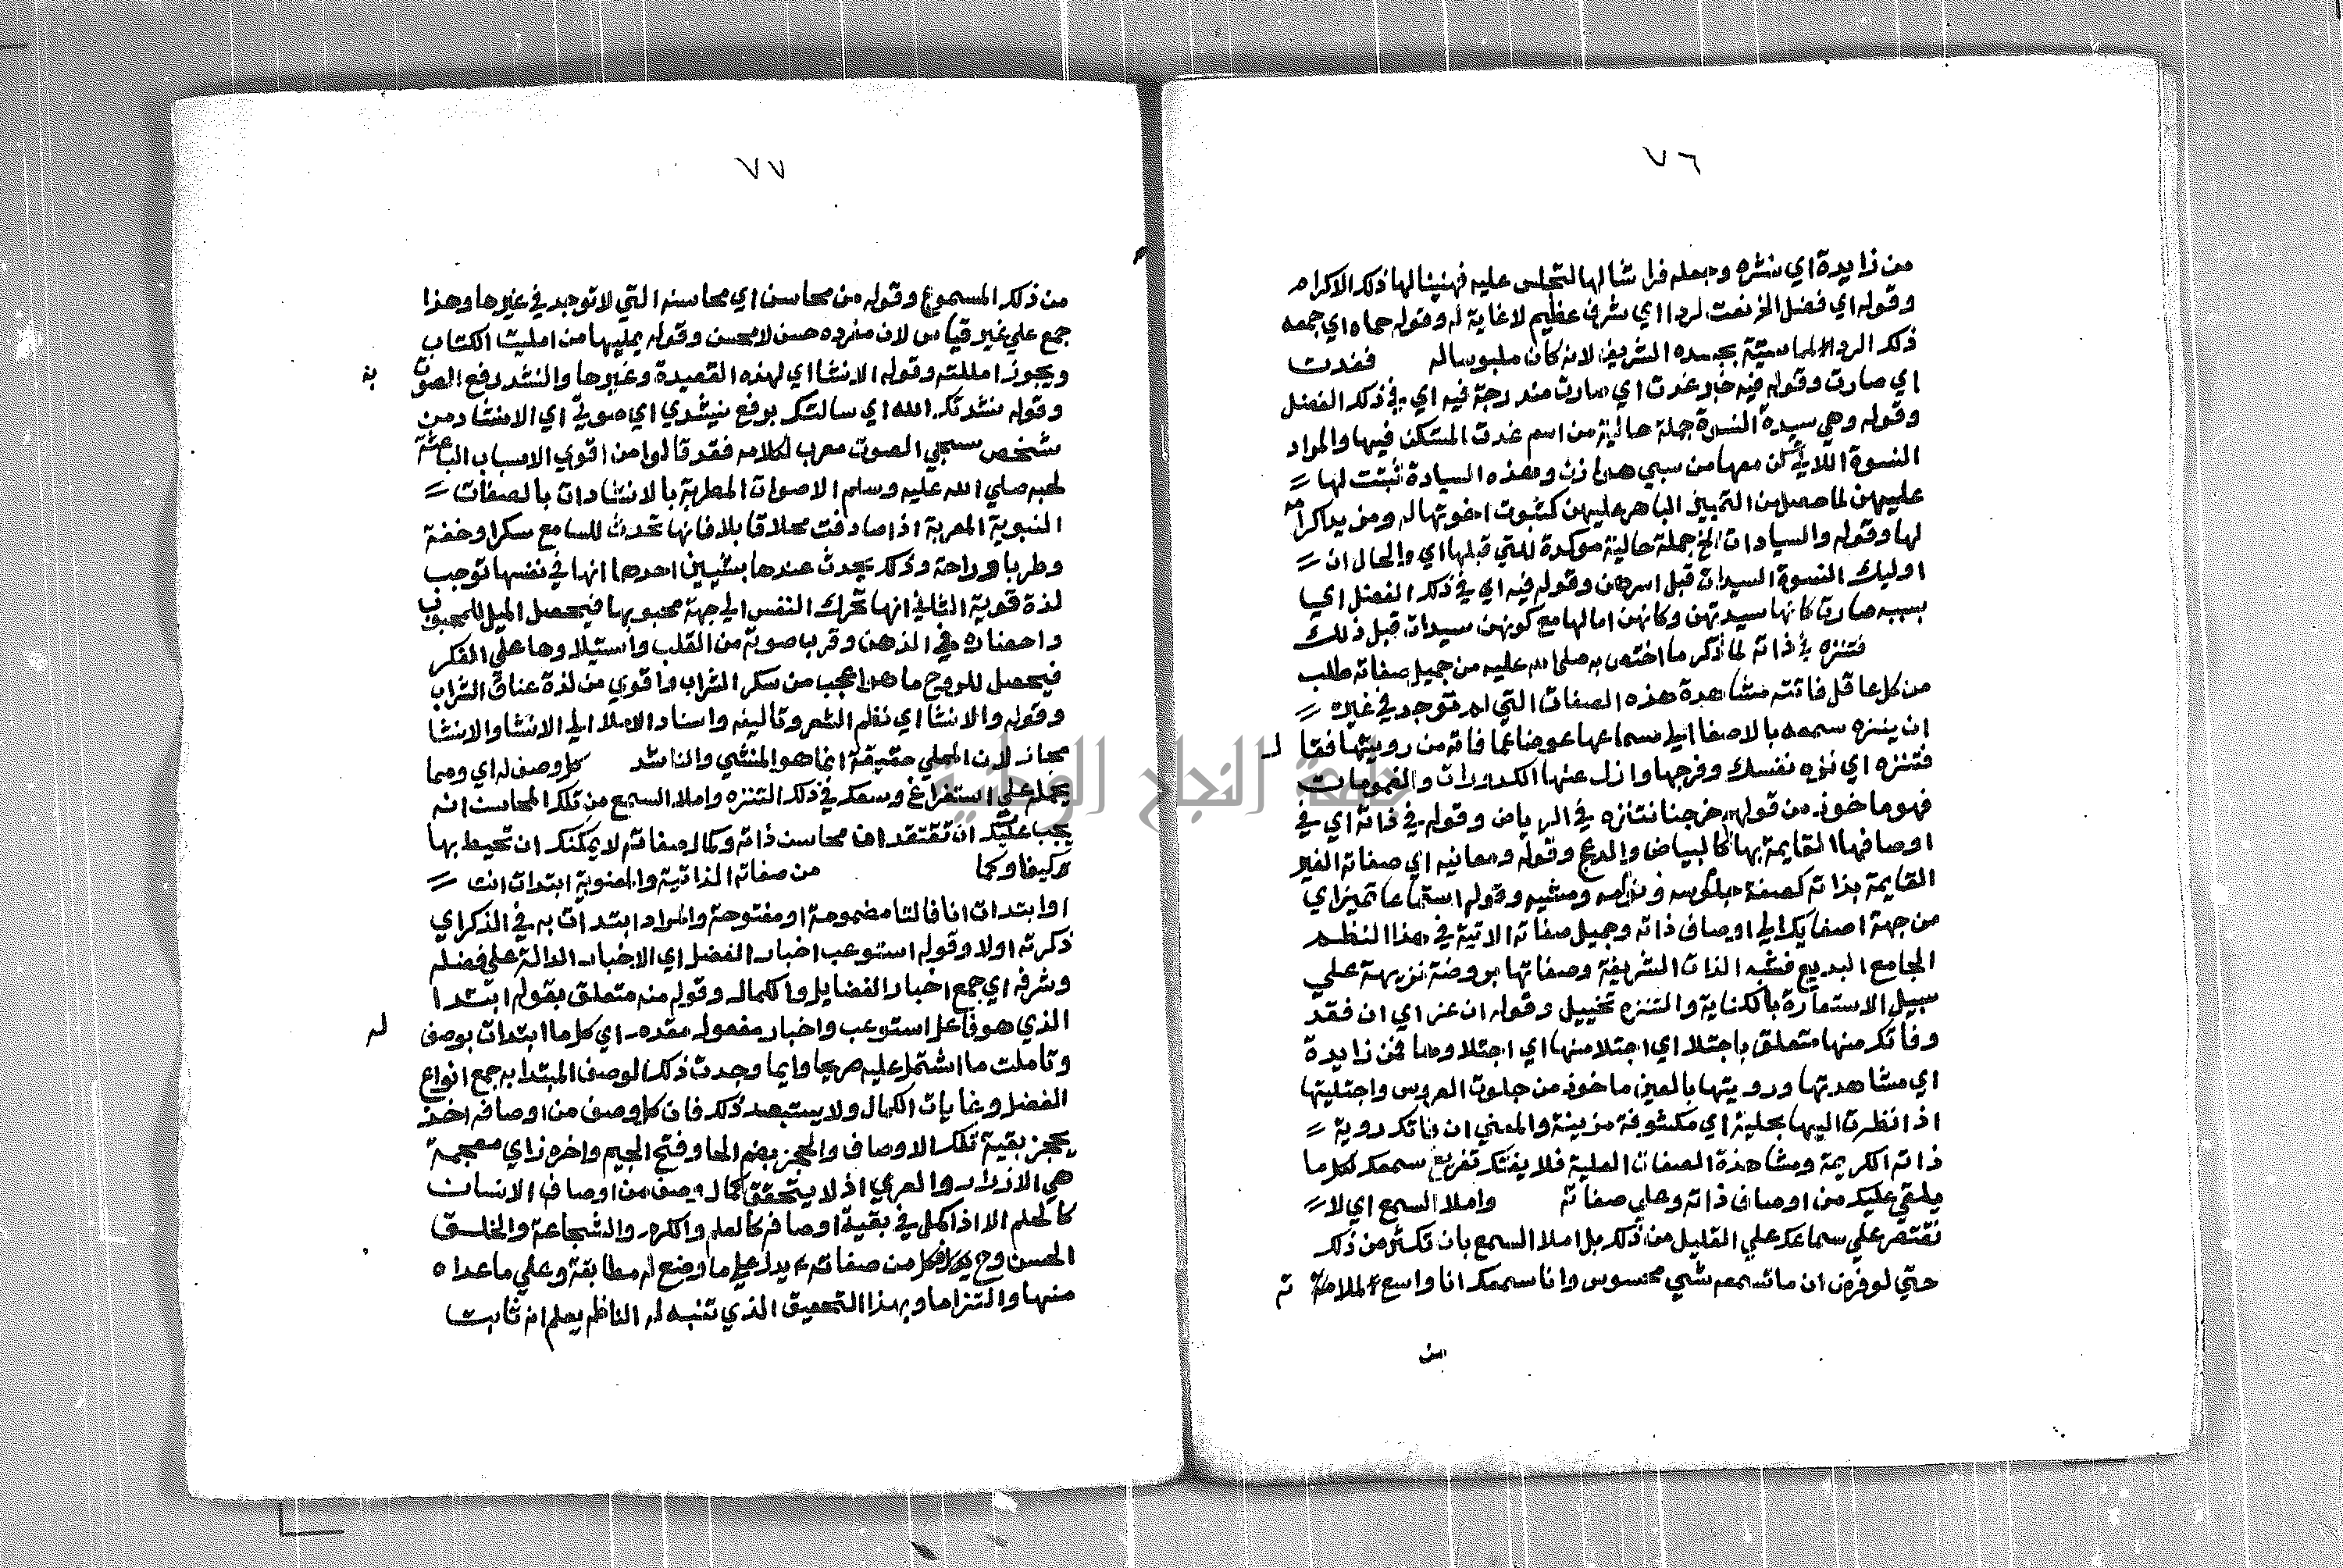 ٧٦
من زايدة اي نشره وجعله فراشا لها لتجلس عليه فهنيئا لها ذلك الاكرام
وقوله اي فضل الخ نعت لردا اي شرف عظيم لا غاية له وقوله حماه اي جمعه
ذلك الردا لماسيته بجسده الشريف لانه كان ملبوسا له فغدت
اي صارت وقوله فيه خبر غدت اي صارت مندرجة فيه اي في ذلك الفضل
وقوله وهي سيدة النسوة جملة حالية من اسم غدت المستكن فيها والمراد
النسوة اللاتي كن معها من سبي هوازن وهذه السيادة ثبتت لها
عليهن لما حصل من التمييز الباهر عليهن كثبوت اخوتها له ومزيد اكرامه
لها وقوله والسيادات الخ جملة حالية موكدة للتي قبلها اي والحال ان
اوليك النسوة السيدات قبل اسرهن وقوله فيه اي في ذلك الفضل اي
بسببه صارت كانها سيدتهن وكانهن اما لها مع كونهن سيدات قبل ذلك
فتنزه في ذاته لما ذكر ما اختص به صلى الله عليه من جميل صفاته طلب
من كل عاقل فاتته مشاهدة هذه الصفات التي لم توجد في غيره
ان ينزه سمعه بالاصغا الي سماعها عوضا عما فاته من رويتها فقال
فتنزه اي نزه نفسك وفرجها وازل عنها الكدورات والغمومات
فهو ماخوذ من قولهم خرجنا نتنزه في الرياض وقوله في ذاته اي في
اوصافها القايمة بها كالبياض والدعج وقوله ومعانيه اي صفاته الغير
القايمة بذاته كصفة جلوسه ونومه ومشيه وقوله استماعا تميز اي
من جهة اصغايك الي اوصاف ذاته وجميل صفاته الاتية في هذا النظم
الجامع البديع فشبه الذات الشريفة وصفاتها بروضة نزيهة علي
سبيل الاستعارة بالكناية والتنزه تخييل وقوله ان عز اي ان فقد
وفاتك منها متعلق باجتلا اي اجتلا منها اي اجتلاوها فمن زايدة
اي مشاهدتها ورويتها بالعين ماخوذ من جلوت العروس واجتليتها
اذا نظرت اليها مجلية اي مكشوفة مزينة والمعني ان فاتك روية
ذاته الكريمة ومشاهدة الصفات العلية فلا يفتك تفريغ سمعك لكل ما
يلقي عليك من اوصاف ذاته وعلي صفاته واملا السمع اي لا
تقتصر علي سماعك علي القليل من ذلك بل املا السمع بان تكثر من ذلك
حتي لو فرض ان ما تسمعه شي محسوس وانا سمعك انا واسع لملاته
من
٧٧
من ذلك المسموع وقوله من محاسن اي محاسنه التي لا توجد في غيرها وهذا
جمع علي غير قياس لان مفرده حسن لا محسن وقوله يمليها من امليت الكتاب
ويجوز امللته وقوله الانشا اي لهذه القصيدة وغيرها والنشد رفع الصوت به
وقوله نشدتك الله اي سالتك برفع نشيدي اي صوتي اي الانشاد من
شخص سجي الصوت معرب لكلامه فقد قالوا من اقوي الاسباب الباعثة
لحبه صلي الله عليه وسلم الاصوات المطربة بالانشادات بالصفات
النبوية المعربة اذا صادفت محلا قابلا فانها تحدث للسامع سكرا وخفة
وطربا وراحة وذلك يحدث عندها بشيين احدها انها في نفسها توجب
لذة قوية الثاني انها تحرك النفس الي جهة محبوبها فيحصل الميل للمحبوب
واحضاره في الذهن وقرب صوبه من القلب واستيلاوها علي الفكر
فيحصل للروح ما هو اعجب من سكر الشراب واقوي من لذة عناق الشراب
وقوله والانشا اي نظم الشعر وتاليفه واسناد الاملا الي الانشا والانشا
مجاز لان المملي حقيقة انما هو المنشي والناشد كل وصف له اي ومما
يحمله علي استفراغ وسعك في ذلك التنزه واملا السمع من تلك المحاسن انه
يجب عليك ان تعتقد ان محاسن ذاته وكمال صفاته لا يمكنك ان تحيط بها
وكيفا وكما من صفاته الذاتية والمعنوية ابتدات انت
او ابتدات انا فالتا مضمومة او مفتوحة والمراد ابتدات به في الذكر اي
ذكرته اولا وقوله استوعب اخبار الفضل اي الاخبار الدالة علي فضله
وشرفه اي جمع اخبار الفضايل والكمال وقوله منه متعلق بقوله ابتدا
الذي هو فاعل استوعب واخبار مفعوله مقدم اي كل ما ابتدات بوصف له
وتاملت ما اشتمل عليه صريحا وايما وجدت ذلك الوصف المبتدا به جمع انواع
الفضل وغايات الكمال ولا يستبعد ذلك فان كل وصف من اوصافه اخذ
بحجز بقية تلك الاوصاف والحجز بضم الحا وفتح الجيم واخره زاي معجمة
هي الازرار والعري اذ لا يتحقق كمال وصف من اوصاف الانسان
كالحلم الا اذا كمل في بقية اوصافه كالعلم والكرم والشجاعة والخلق
الحسن وح فكل من صفاته يدل علي ما وضع له مطابقة وعلي ما عداه
منها والتزاما وبهذا التحقيق الذي تنبه له الناظم يعلم انه ثابت